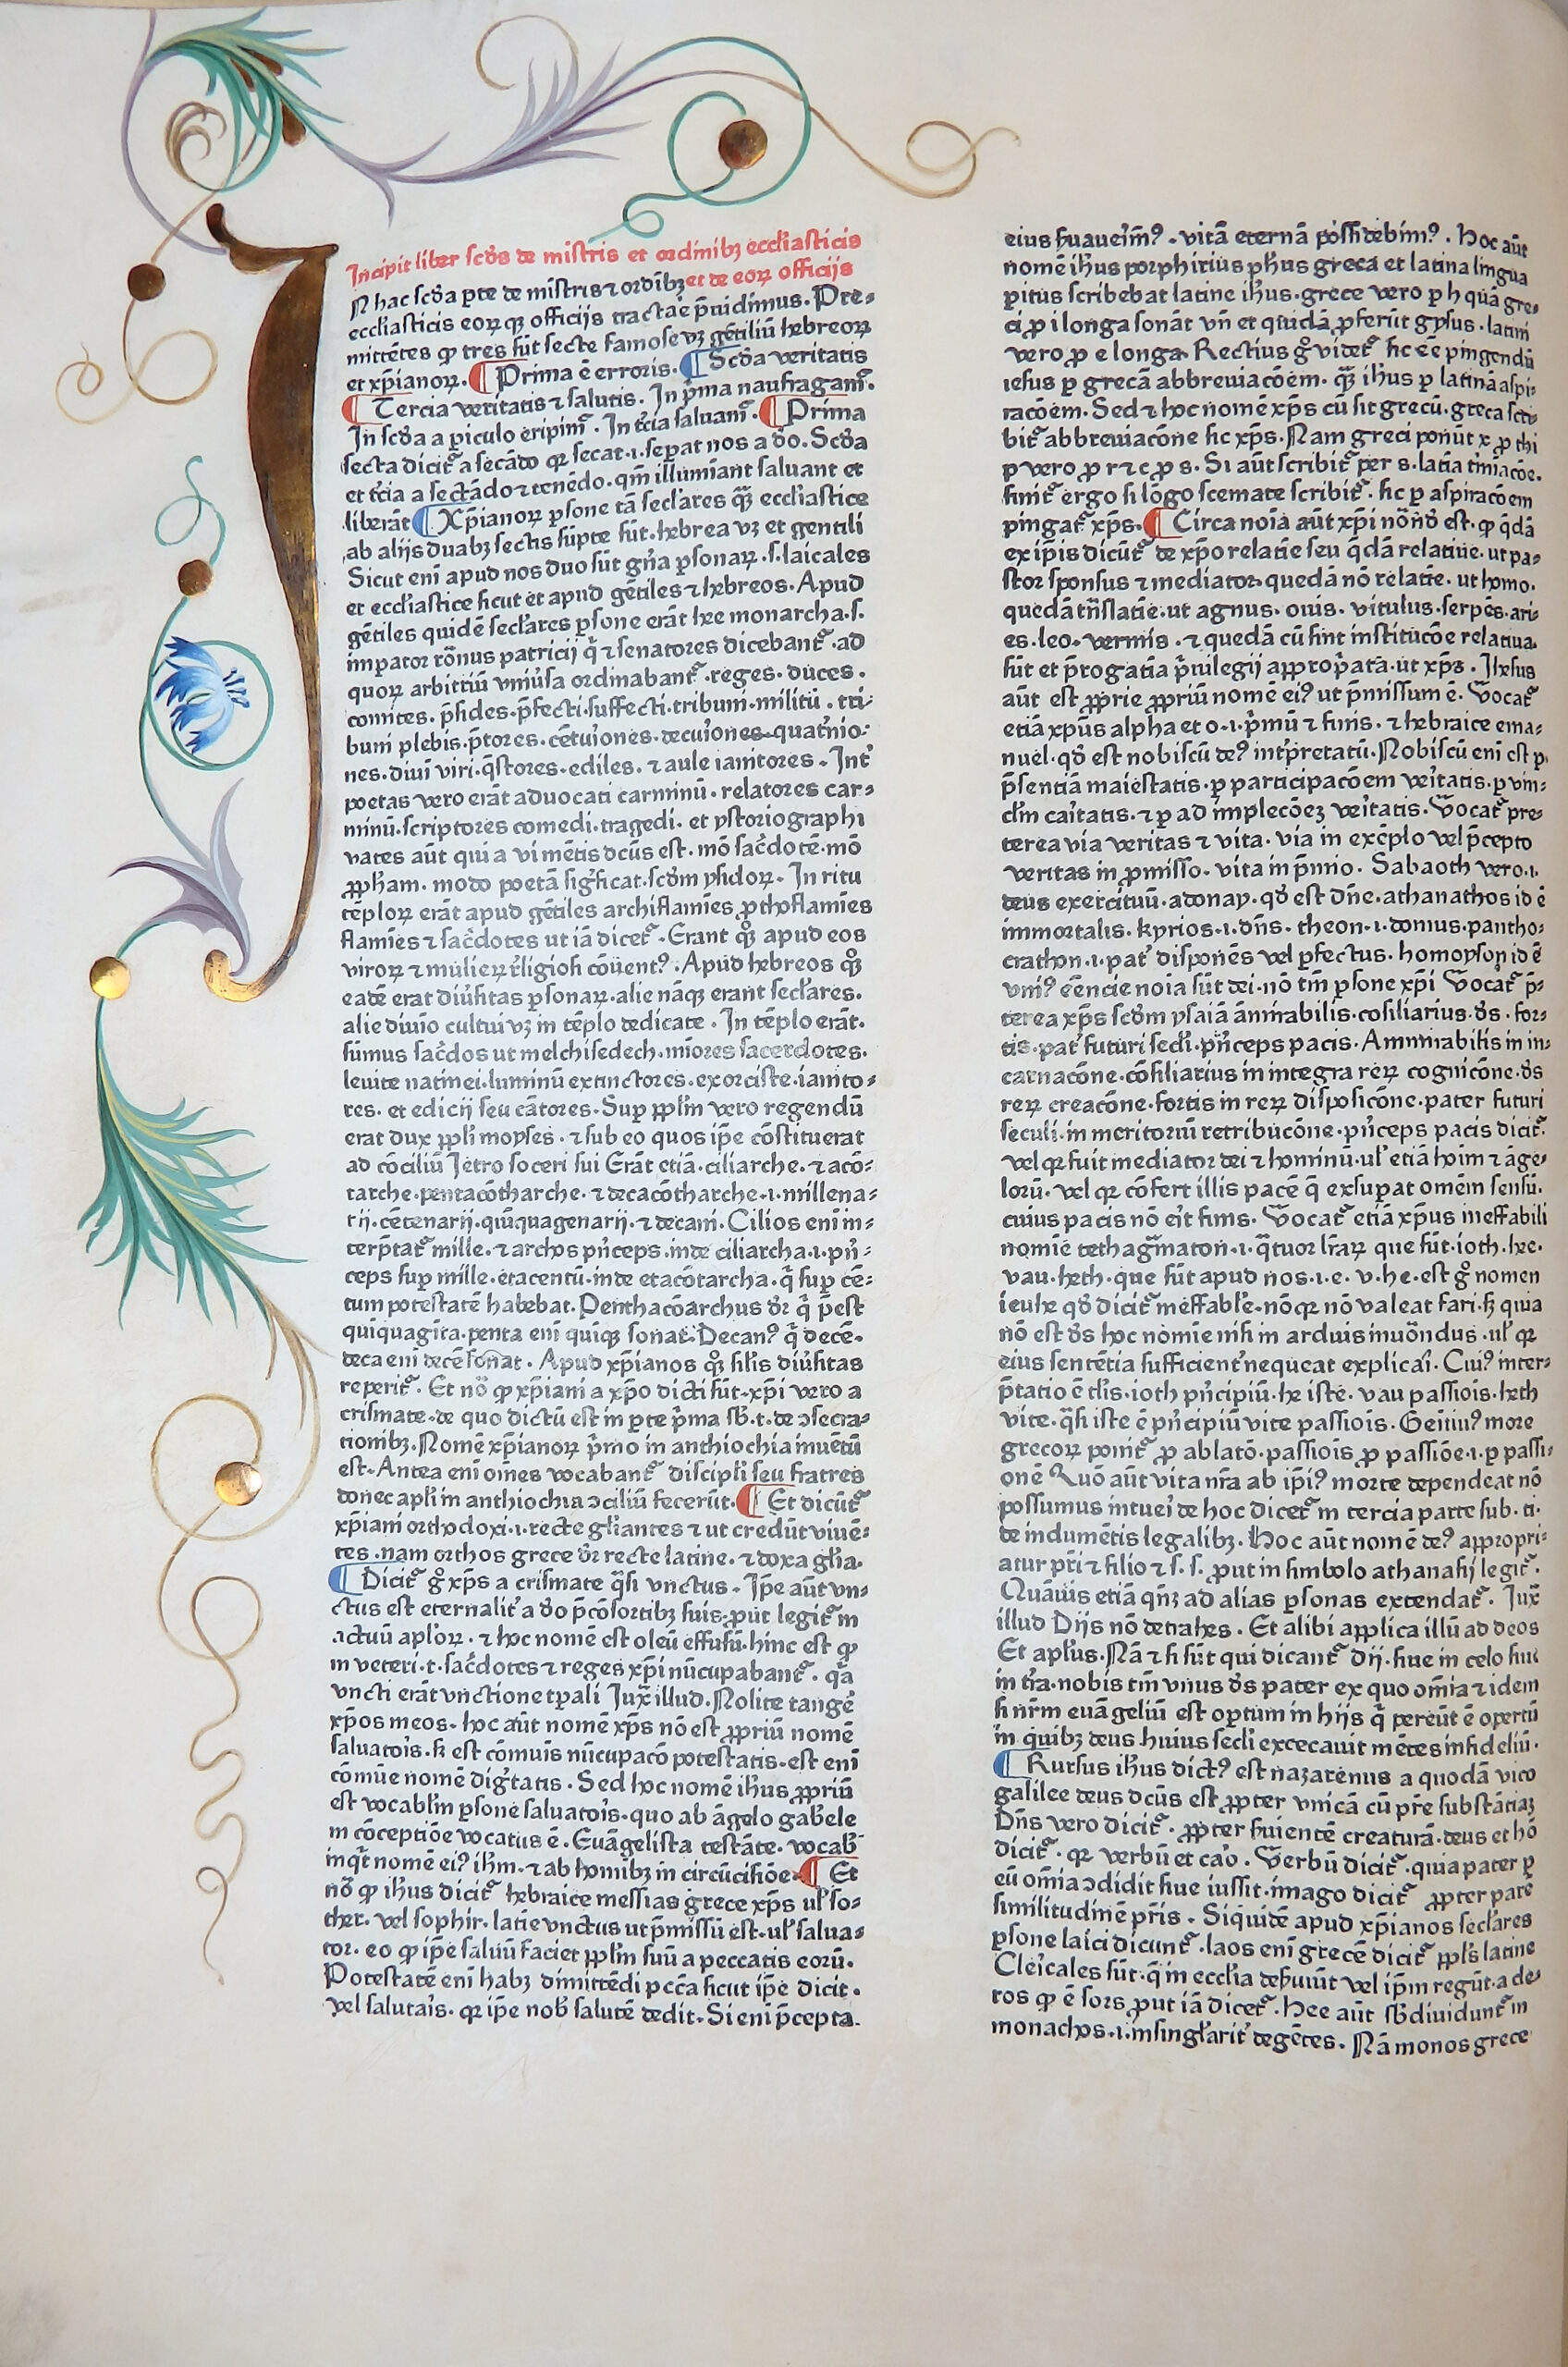 Incipit liber scd̄s de mīstris et ordinibꝫ ecclīasticis
et de eoꝝ officijs
N hac scd̄a ꝑte de mīstris ⁊ ordībꝫ
ecclīasticis eoꝝ qꝫ officijs tractāe p̄uidimus. Pre⸗
mittētes ꝙ tres sūt secte famose vꝫ gētiliū hebreoꝝ
et xp̄ianoꝝ. ¶ Prima ē erroris. ¶ Scd̄a veritatis
¶ Tercia veritatis ⁊ salutis. In p̄ma naufragam᷑.
In scd̄a a ꝑiculo eripim᷑. In t̄cia saluam᷑. ¶ Prima
secta dicit᷑ a secādo qꝛ secat .i. seꝑat nos a d̄o. Scd̄a
et t̄cia a sectādo ⁊ tenēdo. qm̄ illumīant saluant et
liberāt ¶ Xp̄ianoꝝ ꝑsone tā secl̄ares qꝙ ecclīastice
ab alijs duabꝫ sectis sūpte sūt. hebrea vꝫ et gentili
Sicut eni apud nos duo sūt gn̄a ꝑsonaꝝ .s. laicales
et ecclīastice sicut et apud gētiles ⁊ hebreos. Apud
gētiles quidē secl̄ares ꝑsone erāt hee monarcha .s.
imꝑator rōnus patricij q̄ ⁊ senatores dicebant᷑ . ad
quoꝝ arbitriū vniūsa ordinabant᷑ . reges . duces .
comites . p̄sides . p̄fecti . suffecti . tribuni . militū . tri⸗
buni plebis . p̄tores . cēturiones . decuriones . quatn̄io⸗
nes . diuī viri . q̄stores . ediles . ⁊ aule ianitores . Int᷑
poetas vero erāt aduocati carminū . relatores car⸗
minū . scriptores comedi . tragedi . et ystoriographi
vates aūt qui a vi mētis dcūs est . mō sac̄dotē . mō
ꝓpham . modo poetā sigīficat . scd̄m ysidoꝝ . In ritu
tēploꝝ erāt apud gētiles archiflamīes ꝓthoflamīes
flamīes ⁊ sac̄dotes ut iā dicet᷑ . Erant qꝙ apud eos
viroꝝ ⁊ mulieꝝ r̄ligiosi cōuent⁹ . Apud hebreos qꝙ
eadē erat diūsitas ꝑsonaꝝ . alie nāqꝫ erant secl̄ares .
alie diuīo cultui vꝫ in tēplo dedicate . In tēplo erāt .
sūmus sac̄dos ut melchisedech . mīores sacerdotes .
leuite natinei . luminū extinctores . exorciste . ianito⸗
res . et edicij seu cātores . Suꝑ ꝓplm̄ vero regendū
erat dux ꝓpli moyses . ⁊ sub eo quos ip̄e cōstituerat
ad cōciliū Jetro soceri sui Erāt etiā . ciliarche . ⁊ acō⸗
tarche . pentacōtharche . ⁊ decacōtharche .i. millena⸗
rij . cētenarij . qiūquagenarij . ⁊ decani . Cilios eni in⸗
terp̄tat᷑ mille . ⁊ archos pn̄ceps . inde ciliarcha .i. pn̄⸗
ceps suꝑ mille . etacentū . inde etacōtarcha . q̄ suꝑ cē⸗
tum potestatē habebat . Penthacōarchus dr̄ q̄ p̄est
quīquagīta . penta eni quīqꝫ sonat . Decan⁹ q̄ decē .
deca eni decē sonat . Apud xp̄ianos qꝙ sil̄is diūsitas
reperit᷑ . Et nō ꝙ xp̄iani a xp̄o dicti sūt . xp̄i vero a
crismate . de quo dictū est in ꝑte p̄ma sb̄ .t. de ɔsecra⸗
tionibꝫ . Nomē xp̄ianoꝝ p̄mo in anthiochia inuētū
est . Antea eni om̄es vocabant᷑ discipli seu fratres
donec apl̄i in anthiochia ɔciliū fecerūt . ¶ Et dicūt᷑
xp̄iani orthodoxi .i. recte gl̄iantes ⁊ ut credūt viuē⸗
tes . nam orthos grece dr̄ recte latine . ⁊ doxa gl̄ia .
¶ Dicit᷑ g̊ xp̄s a crismate q̄si vnctus . Ip̄e aūt vn⸗
ctus est eternalit᷑ a d̄o p̄cōsortibꝫ suis . ꝓut legit᷑ in
actuū apl̄oꝝ . ⁊ hoc nomē est oleū effusū . hinc est ꝙ
in veteri .t. sac̄dotes ⁊ reges xp̄i nūcupabant᷑ . qꝛ
vncti erāt vnctione tꝑali Jux̄ illud . Nolite tangē
xp̄os meos . hoc aūt nomē xp̄s nō est ꝓpriū nomē
saluatoīs . sꝫ est cōmuīs nūcupacō potestatis . est eni
cōmūe nomē digītatis . Sed hoc nomē ih̄us ꝓpriū
est vocablm̄ ꝑsone saluatoīs . quo ab āgelo gab̄ele
in cōceptiōe vocatus ē . Euāgelista testāte . vocab̄
inqt̄ nomē ei⁹ ih̄m . ⁊ ab homībꝫ in circūcisiōe . ¶ Et
nō ꝙ ih̄us dicit᷑ hebraice messias grece xp̄s ul̄ so⸗
ther . vel sophir . latīe vnctus ut p̄missū est . ul̄ salua⸗
tor . eo ꝙ ip̄e saluū faciet ꝓplm̄ suū a peccatis eorū .
Potestatē eni habꝫ dimittēdi pcc̄a sicut ip̄e dicit .
vel salutaīs . qꝛ ip̄e nob̄ salutē dedit . Si eni p̄cepta
eius s̄uaueim⁹ . vitā eternā possidebim⁹ . Hoc aūt
nomē ih̄us porphirius ph̄us greca et latina lingua
pitus scribebat latine ih̄us . grece vero ꝑ h quā gre⸗
ci ꝑ i longa sonāt vn̄ et qiudā ꝓferūt gysus . latini
vero ꝑ e longa Rectius g̊ videt᷑ sic eē pingendū
iesus ꝑ grecā abbreuiacōem . qꝙ ih̄us ꝑ latinā aspi⸗
racōem . Sed ⁊ hoc nomē xp̄s cū sit grecū . greca scri
bit᷑ abbreuiacōne sic xp̄s . Nam greci ponūt x ꝑ chi
p vero ꝑ r ⁊ c ꝑ s . Si aūt scribit᷑ per s . latīa t̄miacōe .
finit᷑ ergo si lōgo scemate scribit᷑ . sic ꝑ aspiracōem
pingat᷑ xp̄s . ¶ Circa noīa aūt xp̄i nōnd̄ est . ꝙ q̄dā
ex ip̄is dicūt᷑ de xp̄o relatīe seu q̄dā relatiue . ut pa⸗
stor sponsus ⁊ mediator quedā nō relatīe . ut homo .
quedā tn̄slatīe . ut agnus . ouis . vitulus . serpēs . ari⸗
es . leo . vermis . ⁊ quedā cū sint institucōe relatiua .
sūt et p̄rogatīa p̄uilegij approp̄ata . ut xp̄s . Jhesus
aūt est ꝓprie ꝓpriū nomē ei⁹ ut p̄missum ē . Vocat᷑
etiā xp̄us alpha et o .i. p̄mū ⁊ finis . ⁊ hebraice ema⸗
nuel . qd̄ est nobiscū de⁹ int̄pretatū . Nobiscū eni est ꝑ
p̄sentiā maiestatis . ꝑ participacōem veītatis . ꝑ vin⸗
clm̄ caītatis . ⁊ ꝑ ad implecōeꝫ veītatis . Vocat᷑ pre⸗
terea via veritas ⁊ vita . via in exēplo vel p̄cepto
veritas in ꝓmisso . vita in p̄mio . Sabaoth vero .i.
deus exercituū . adonay . qd̄ est dn̄e . athanathos id ē
immortalis . kyrios .i. dn̄s . theon .i. domus . pantho⸗
crathon .i. pat᷑ disponēs vel ꝑfectus . homoyson id ē
vni⁹ eēncie noīa sūt dei . nō tm̄ ꝑsone xp̄i Vocat᷑ p̄⸗
terea xp̄s scd̄m ysaiā āmirabilis . cōsiliarius . d̄s . for⸗
tis . pat᷑ futuri secl̄i . pn̄ceps pacis . Ammirabilis in in⸗
carnacōne . cōsiliarius in integra reꝝ cognicōne . d̄s
reꝝ creacōne . fortis in reꝝ disposicōne . pater futuri
seculi . in meritorū retribucōne . pn̄ceps pacis dicit᷑
vel qꝛ fuit mediator dei ⁊ hominū . ul̄ etiā hoīm ⁊ āge⸗
lorū . vel qꝛ cōfert illis pacē q̄ exsuꝑat omēm sensū .
cuius pacis nō eīt finis . Vocat᷑ etiā xp̄us ineffabili
nomīe tethagr̄maton .i. q̄tuor lr̄aꝝ que sūt . ioth . he .
vau . heth . que sūt apud nos .i. e . v . he . est g̊ nomen
ieuhe qd̄ dicit᷑ ineffabl̄e . nō qꝛ nō valeat fari . sꝫ quia
nō est d̄s hoc nomīe nisi in arduis inuōndus . ul̄ qꝛ
eius sentētia sufficient᷑ nequeat explicaī . Cui⁹ inter⸗
p̄tatio ē tl̄is . ioth pn̄cipiū . he iste . vau passiōis . heth
vite . q̄si iste ē pn̄cipiū vite passiōis . Genitiu⁹ more
grecoꝝ ponit᷑ ꝓ ablatō . passiōis ꝓ passiōe .i. ꝑ passi⸗
onē Quō aūt vita nr̄a ab ip̄i⁹ morte dependeat nō
possumus intueī de hoc dicet᷑ in tercia parte sub . ti .
de indumētis legalibꝫ . Hoc aūt nomē de⁹ appropri⸗
atur pr̄i ⁊ filio ⁊ s . s . ꝓut in simbolo athanasij legit᷑ .
Quāuis etiā qn̄ꝫ ad alias ꝑsonas extendat᷑ . Jux̄
illud Dijs nō detrahes . Et alibi applica illū ad deos
Et apl̄us . Nā ⁊ si sūt qui dicant᷑ dij . siue in celo siue
in t̄ra . nobis tm̄ vnus d̄s pater ex quo om̄ia ⁊ idem
si nr̄m euāgeliū est oꝑtum in hijs q̄ pereūt ē opertū
in quibꝫ deus huius secl̄i excecauit mētes infideliū .
¶ Rursus ih̄us dict⁹ est nazarēnus a quodā vico
galilee deus dcūs est ꝓpter vnicā cū pr̄e substātiaꝫ
Dn̄s vero dicit᷑ . ꝓpter s̄uientē creaturā . deus et hō
dicit᷑ . qꝛ verbū et cāo . Verbū dicit᷑ . quia pater ꝑ
eū om̄ia ɔdidit siue iussit . imago dicit᷑ ꝓpter parē
similitudinē pr̄is . Siquidē apud xp̄ianos secl̄ares
ꝑsone laici dicunt᷑ . laos eni grecē dicit᷑ ꝓpl̄s latine
Cleīcales sūt . q̄ in ecclīa des̄uiūt vel ip̄m regūt . a cle⸗
ros ꝙ ē sors ꝓut iā dicet᷑ . Hee aūt sb̄diuidunt᷑ in
monachos .i. insingl̄arit᷑ degētes . Nā monos grece